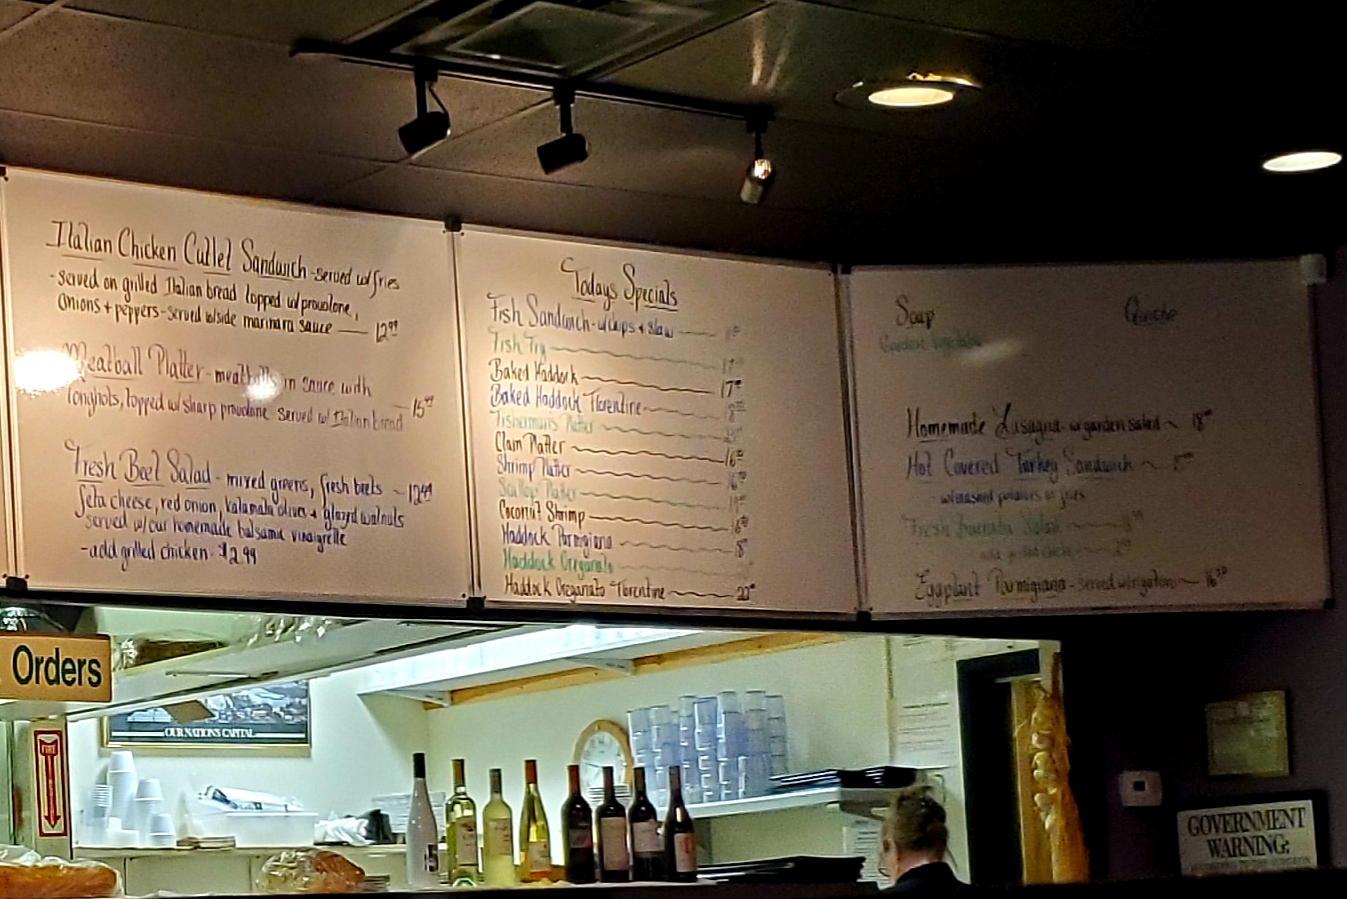 Italian Chicken Cutlet Sandwich - served w/ fries
- served on grilled Italian bread topped w/ provolone,
onions + peppers - served w/side marinara sauce — 12.99
Meatball Platter - meatballs in sauce with
longhots, topped w/ sharp provolone served w/ Italian bread — 15.99
Fresh Beet Salad - mixed greens, fresh beets ~ 12.99
feta cheese, red onion, kalamata olives + glazed walnuts
served w/ our homemade balsamic vinaigrette
- add grilled chicken - $2.99
Todays Specials
Fish Sandwich - w/chips + slaw
Fish Fry
Baked Haddock 17
Baked Haddock Florentine
Fishermans Platter
Clam Platter 16
Shrimp Platter 16
Scallop Platter
Coconut Shrimp 16
Haddock Parmigiana
Haddock Oreganato
Haddock Oreganato Florentine
Soup
Quiche
Garden Vegetable
Homemade Lasagna - w garden salad ~ 18
Hot Covered Turkey Sandwich ~
- w/mashed potatoes or fries
Fresh Burrata Salad
add grilled chicken
Eggplant Parmigiana - served w/rigatoni ~ 16
Orders
FIRE
OUR NATION'S CAPITAL
GOVERNMENT
WARNING: